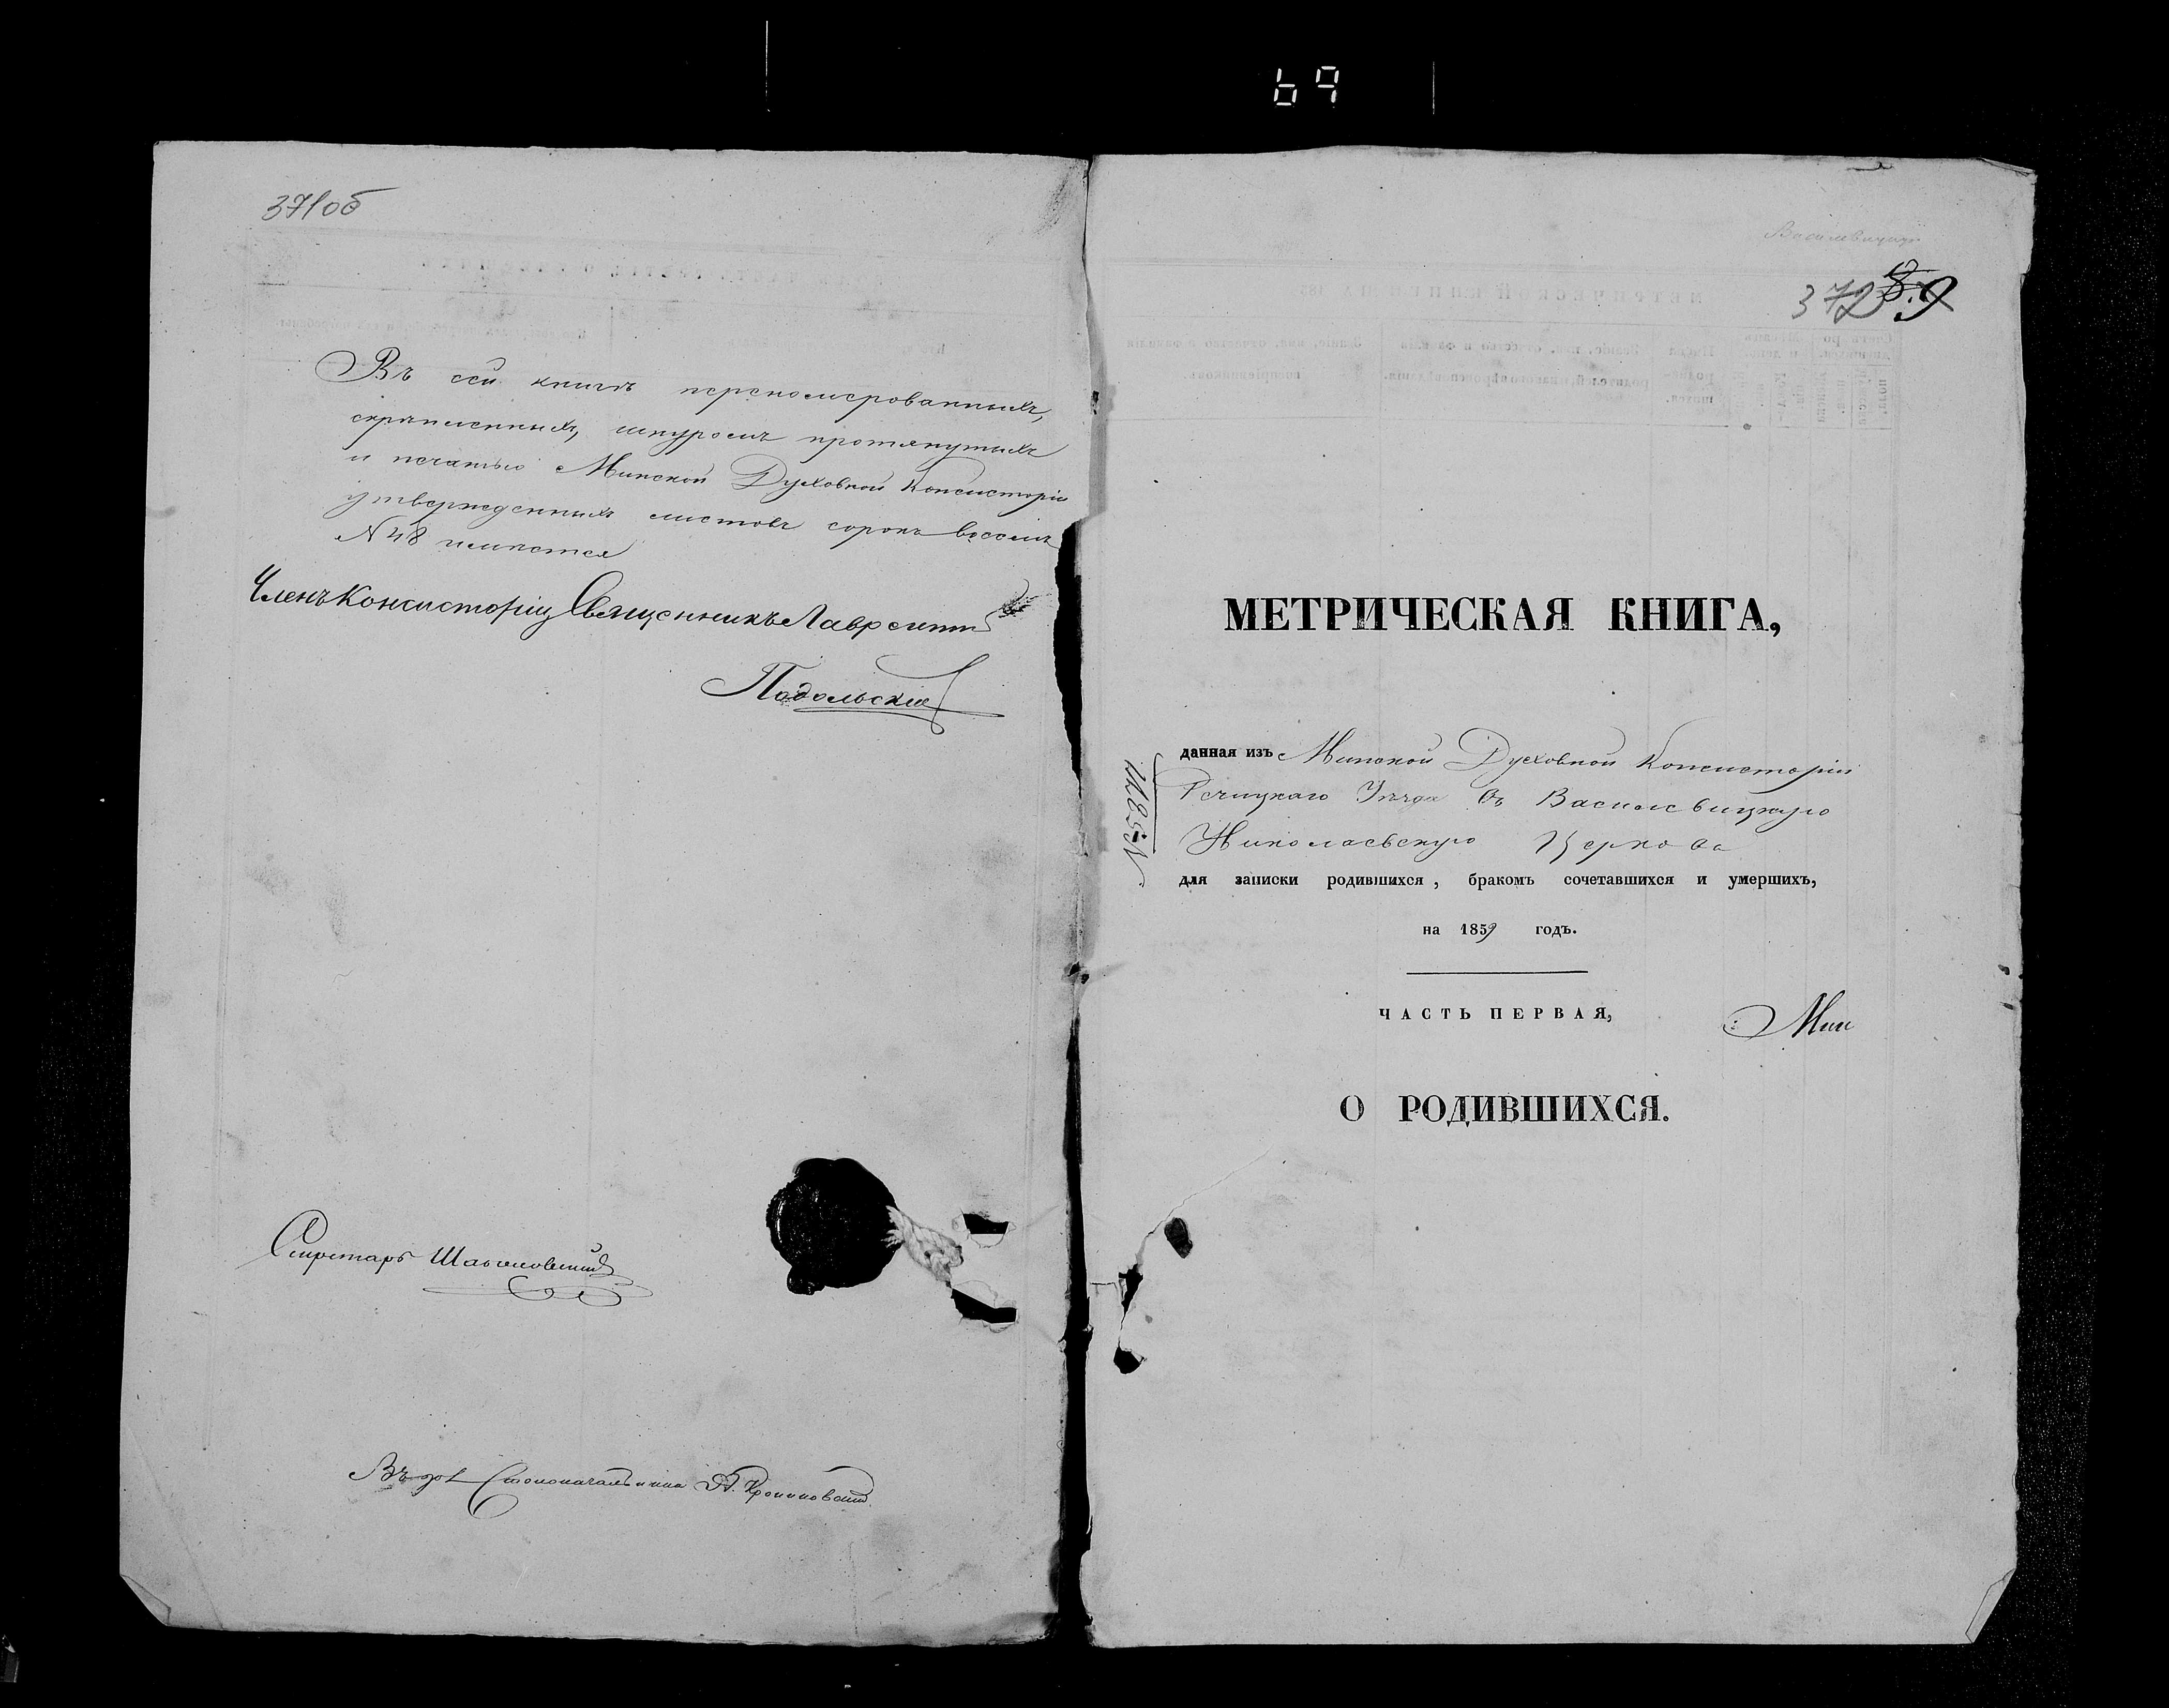 69
371об
Въ сей книгѣ переномерованныхъ,
скрѣпленныхъ, шнуромъ протянутыхъ
и печатью Минской Духовной Консисторіи
утвержденныхъ листовъ сорокъ восемь
N 48 имѣется
Членъ Консисторіи Священникъ Лаврентій
Подольскій
Секретарь
Столоначальника
372
МЕТРИЧЕСКАЯ КНИГА,
данная изъ Минской Духовной Консисторіи
Рѣчицкаго Уѣзда въ Василевицкую
Николаевскую Церковь
для записки родившихся, бракомъ сочетавшихся и умершихъ,
на 1859 годъ.
ЧАСТЬ ПЕРВАЯ,
Мин
О РОДИВШИХСЯ.